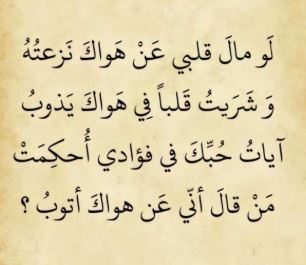 لَو مالَ قلبي عَنْ هَواكَ نَزعتُهُ
وَ شَرَيتُ قَلباً فِي هَواكَ يَذوبُ
آياتُ حُبِّكَ في فؤادي أُحكِمَتْ
مَنْ قالَ أنّي عَن هواكَ أتوبُ ؟